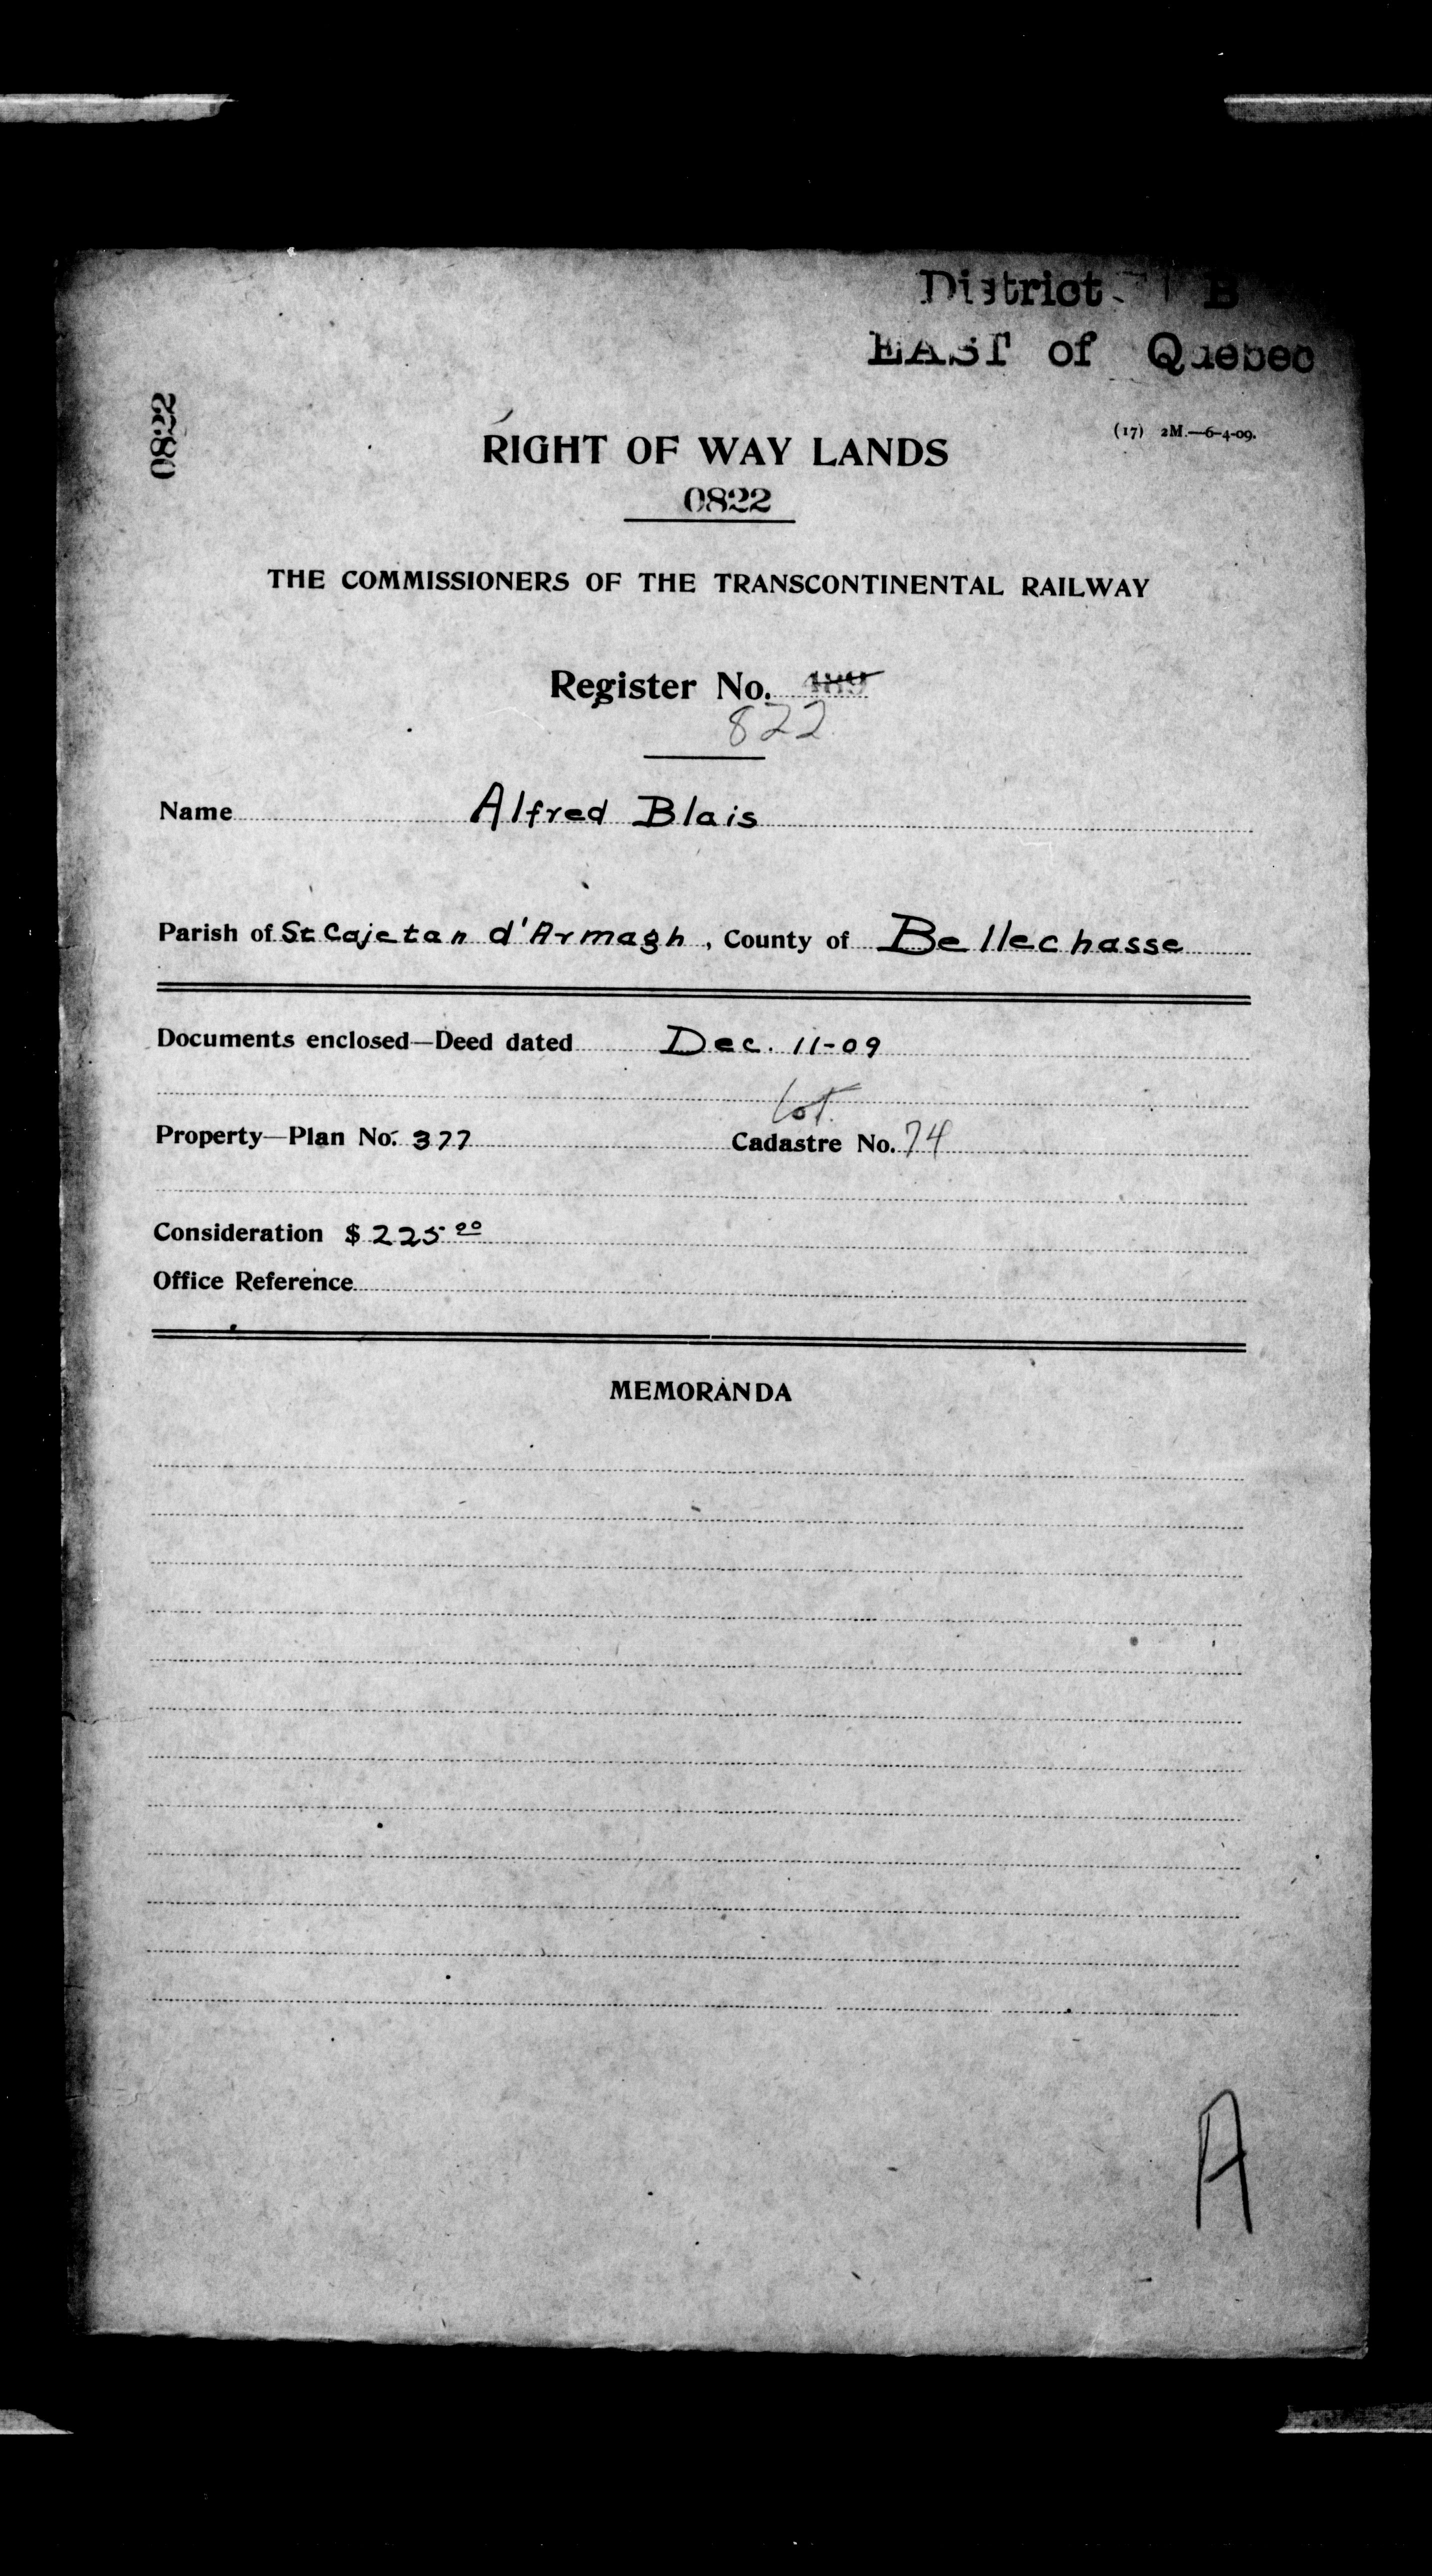 District B
EAST of Quebec
0822
(17) 2M.—6-4-09.
RIGHT OF WAY LANDS
0822
THE COMMISSIONERS OF THE TRANSCONTINENTAL RAILWAY
Register No. 489
822
Name Alfred Blais
Parish of St Cajetan d'Armagh, County of Bellechasse
Documents enclosed—Deed dated Dec. 11-09
Lot
Property—Plan No. 377 Cadastre No. 74
Consideration $ 225.00
Office Reference
MEMORANDA
A